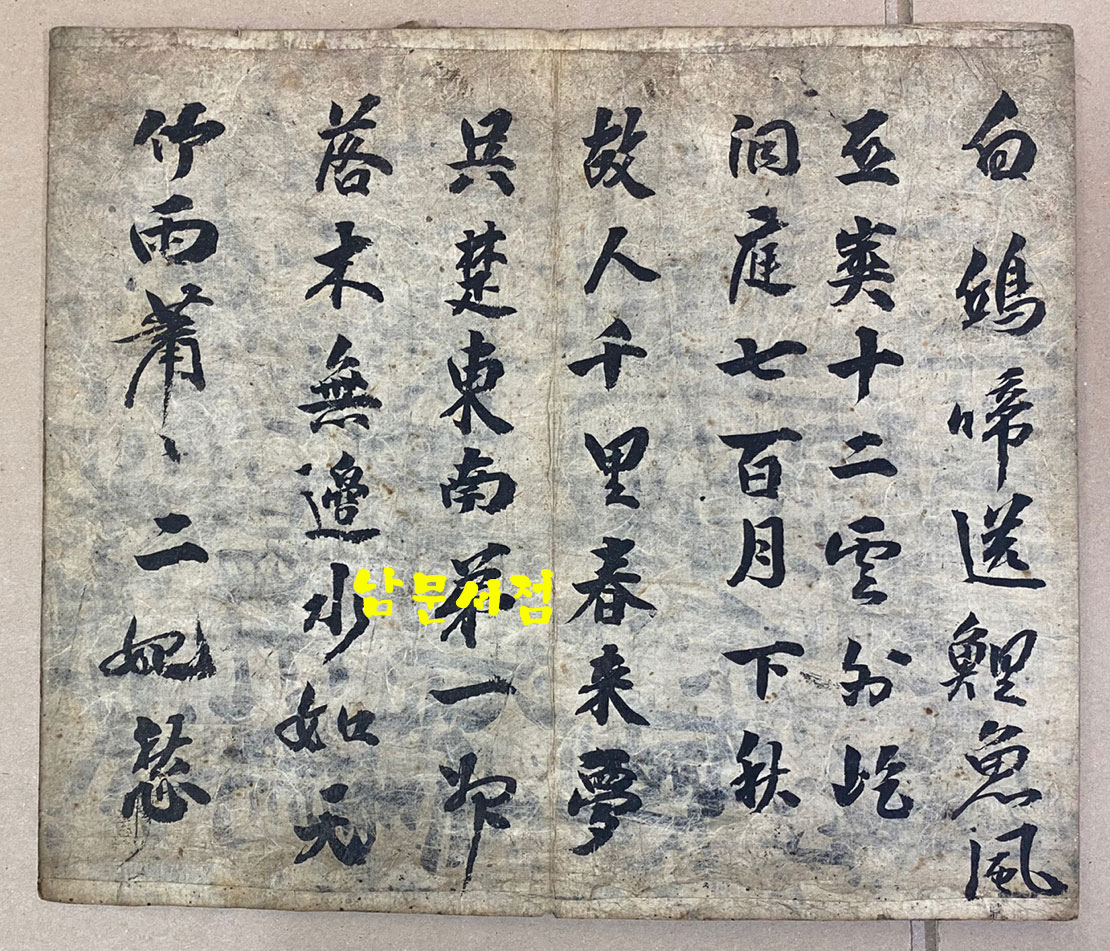 白鷗啼送鯉魚風
十二雲外屹
洞庭七百月下秋
故人千里春来夢
吳楚東南第一州
落木無邊水如天
竹雨蕭〻二妃愁
남문서점